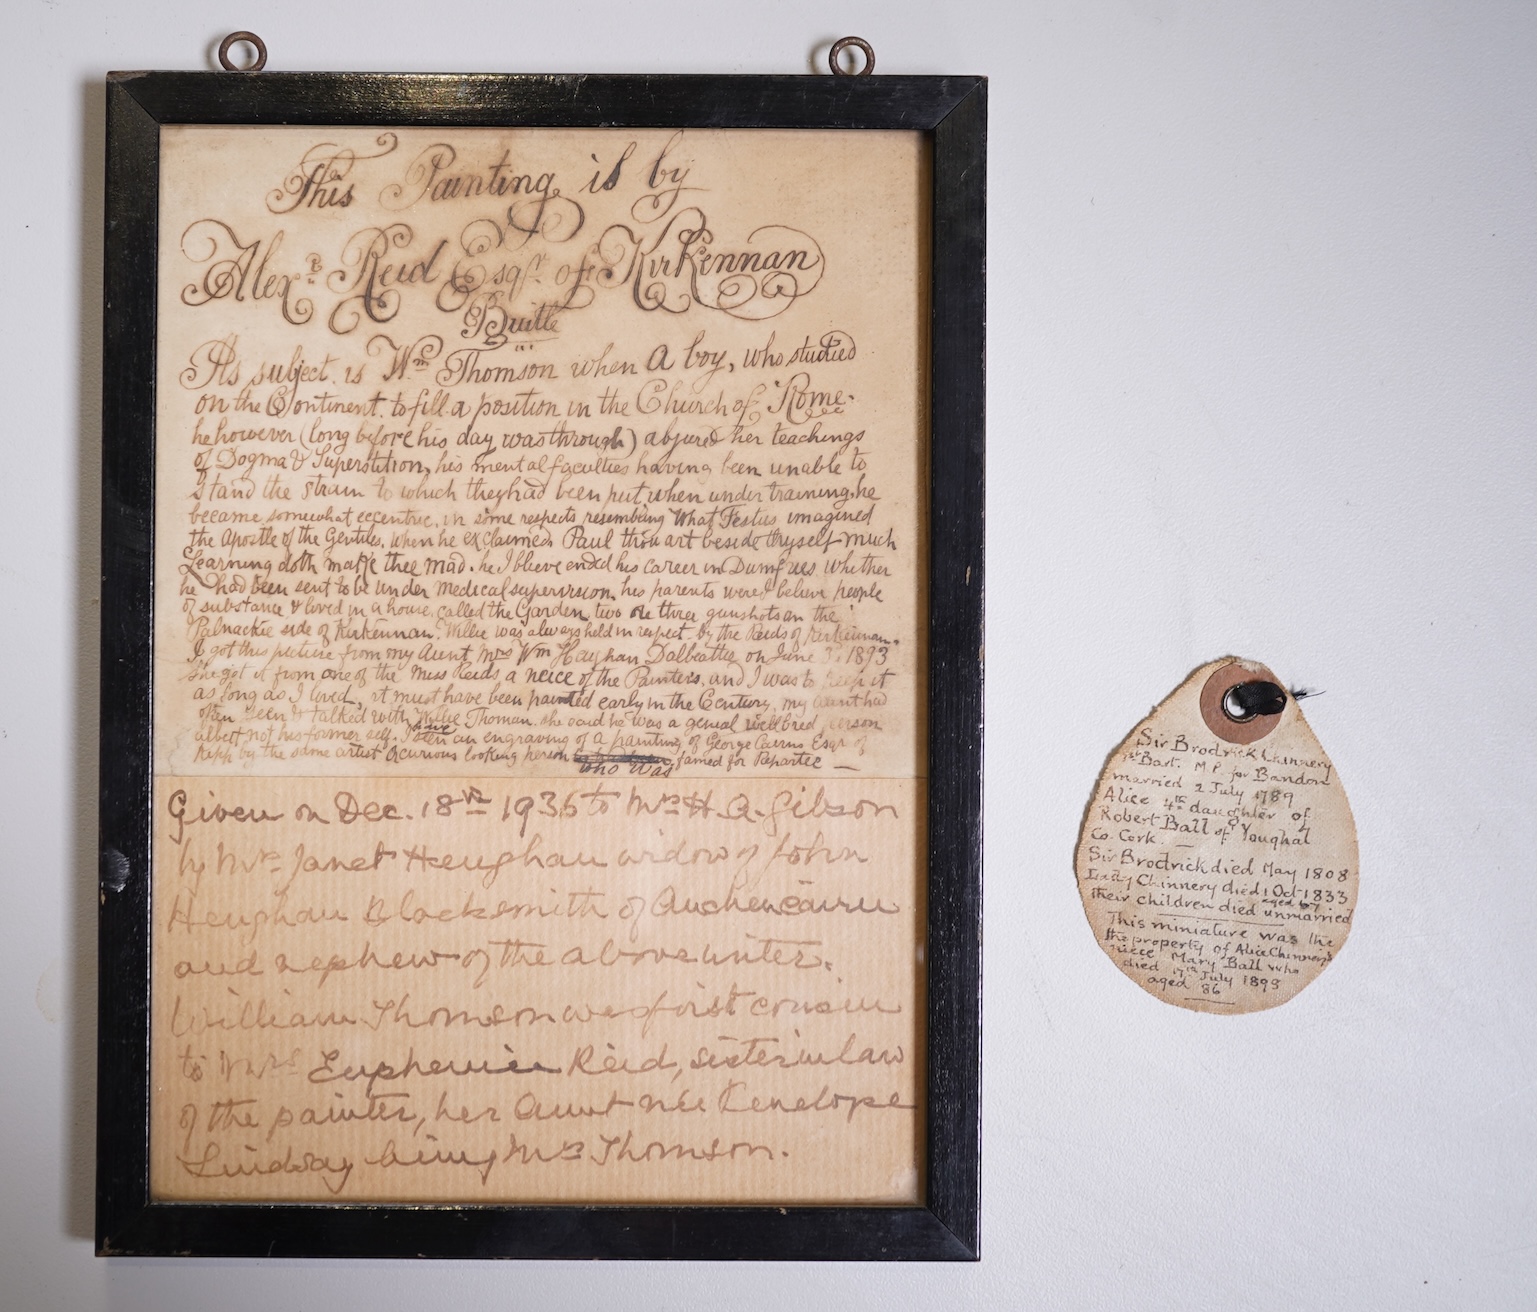 This Painting is by
Alexr Reid Esqr. of KirKennan
Buitle
Its subject is Wm Thomson when a boy, who studied
on the Continent. to fill a position in the Church of Rome.
he however (long before his day was through) abjured her teachings
of Dogma & Superstition, his mental faculties having been unable to
Stand the strain to which they had been put when under training. he
became somewhat eccentric, in some respects resembling What Festus imagined
the Apostle of the Gentiles. when he exclaimed. Paul thou art beside thyself much
Learning doth make thee mad. he I blieve ended his career in Dumfries whether
he had been sent to be under Medical supervision. his parents were I believe people
of substance & lived in a house, called the Garden, two or three gunshots on the
Palnackie side of Kirkennan. Willie was always held in respect by the Reids of Kirkennan.
I got this picture from my Aunt Mrs Wm Heughan Dalbeattie on June 3. 1893
She got it from one of the Miss Reids a neice of the Painters, and I was to keep it
as long as I lived, it must have been painted early in the Century, my Aunt had
often seen & talked with Willie Thoman. she said he was a genial well bred person
albert not his former self. I have seen an engraving of a painting of George Cairns Esqr of
Kipp by the same artist a curious looking person who was famed for Repartee —
Given on Dec. 18th 1935 to Mrs H. A. Gibson
by Mrs Janet Heughan widow of John
Heughan Blacksmith of Auchencairn
and nephew of the above writer.
William Thomson was first cousin
to Mrs Euphemia Reid, sister in law
of the painter, her Aunt née Penelope
Lindsay being Mrs Thomson.
Sir Brodrick Chinnery
1st Bart. M.P. for Bandon
married 2 July 1789
Alice 4th daughter of
Robert Ball of Youghal
Co. Cork. —
Sir Brodrick died May 1808
Lady Chinnery died 1 Oct 1833
aged 67
their children died unmarried
This miniature was the
the property of Alice Chinnery's
niece Mary Ball who
died 17th July 1893
aged 86